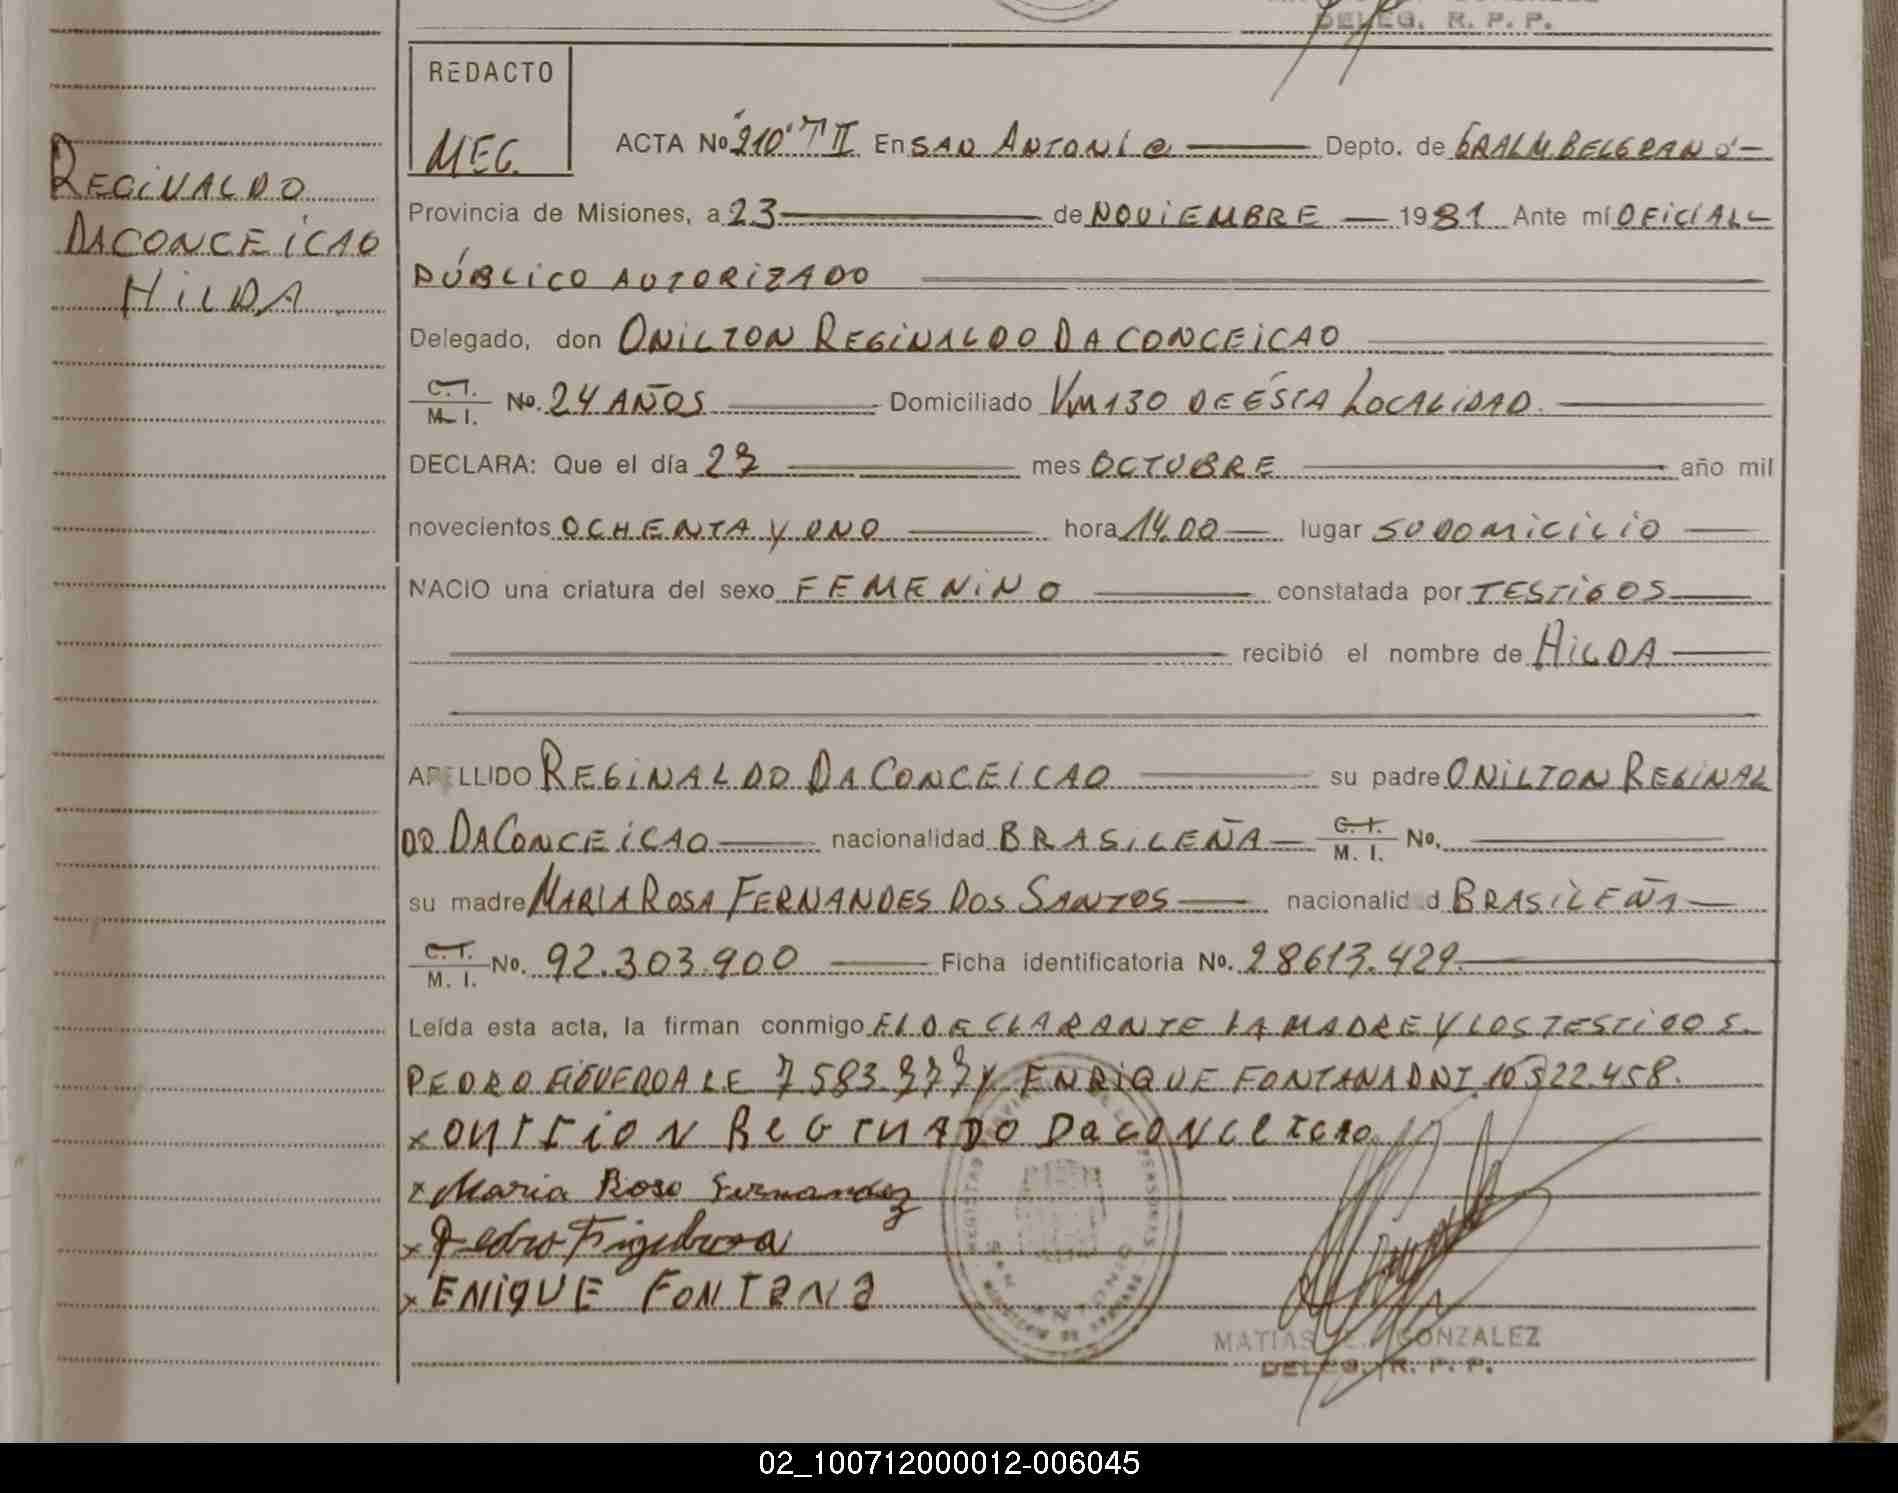 DELEG. R. P. P.
REDACTO
MEC.
ACTA No 210 T II En SAN ANTONIO Depto. de GRAL M. BELGRANO
REGINALDO
DACONCEICAO
HILDA
Provincia de Misiones, a 23 de NOVIEMBRE 1981 Ante mí OFICIAL
PÚBLICO AUTORIZADO
Delegado, don ONILTON REGINALDO DA CONCEICAO
C.I. M. I. No. 24 AÑOS Domiciliado KM 130 DE ÉSTA LOCALIDAD.
DECLARA: Que el día 23 mes OCTUBRE año mil
novecientos OCHENTA Y UNO hora 14,00 lugar SU DOMICILIO
NACIO una criatura del sexo FEMENINO constatada por TESTIGOS
recibió el nombre de HILDA
APELLIDO REGINALDO DA CONCEICAO su padre ONILTON REGINAL
DO DACONCEICAO nacionalidad BRASILEÑA C.I. M. I. No.
su madre MARIA ROSA FERNANDES DOS SANTOS nacionalidad BRASILEÑA
C.I. M. I. No. 92.303.900 Ficha identificatoria No. 28613.429
Leída esta acta, la firman conmigo EL DECLARANTE LA MADRE Y LOS TESTIGOS.
PEDRO FIGUEROA LE 7583.977 Y ENRIQUE FONTANA DNI. 10522.458.
x Maria Rosa Fernandez
x Pedro
x ENIQUE FONTANA
SAN ANTONIO
MATIAS GONZALEZ
DELEG. R. P. P.
02_100712000012-006045